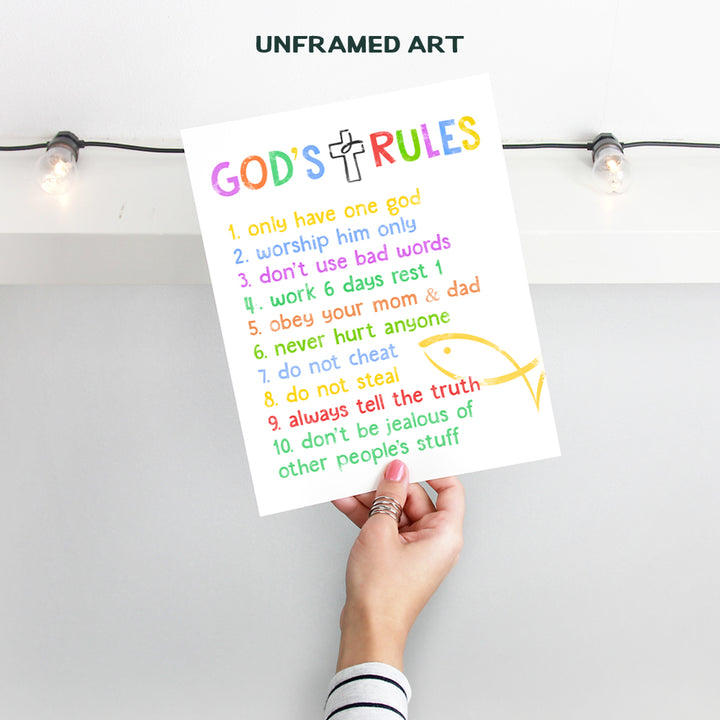 UNFRAMED ART
GOD'S RULES
1. only have one god
2. worship him only
3. don't use bad words
4. work 6 days rest 1
5. obey your mom & dad
6. never hurt anyone
7. do not cheat
8. do not steal
9. always tell the truth
10. don't be jealous of
other people's stuff